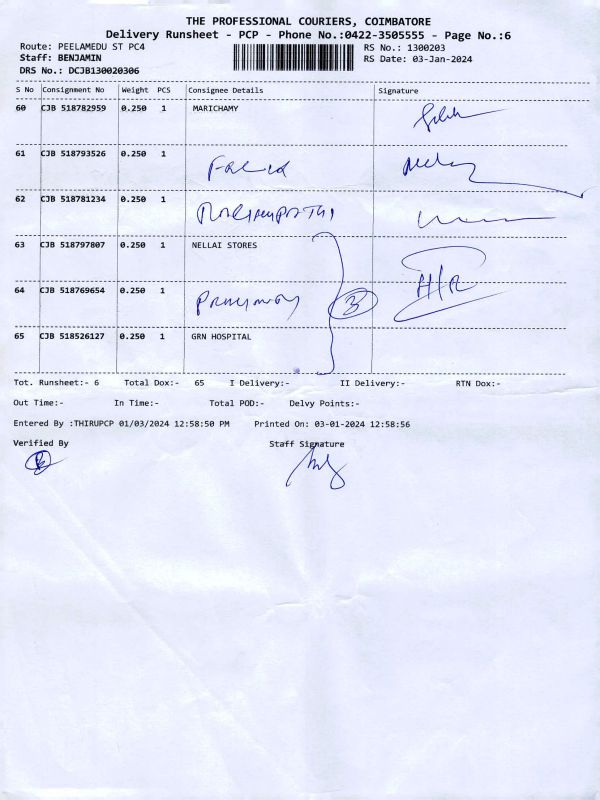 THE PROFESSIONAL COURIERS, COIMBATORE
Delivery Runsheet - PCP - Phone No.:0422-3505555 - Page No.:6
Route: PEELAMEDU ST PC4 RS No.: 1300203
Staff: BENJAMIN RS Date: 03-Jan-2024
DRS No.: DCJB130020306
S No Consignment No Weight PCS Consignee Details Signature
60 CJB 518782959 0.250 1 MARICHAMY
61 CJB 518793526 0.250 1
62 CJB 518781234 0.250 1
63 CJB 518797807 0.250 1 NELLAI STORES
64 CJB 518769654 0.250 1 3 H/R
65 CJB 518526127 0.250 1 GRN HOSPITAL
Tot. Runsheet:- 6 Total Dox:- 65 I Delivery:- II Delivery:- RTN Dox:-
Out Time:- In Time:- Total POD:- Delvy Points:-
Entered By :THIRUPCP 01/03/2024 12:58:50 PM Printed On: 03-01-2024 12:58:56
Verified By Staff Signature